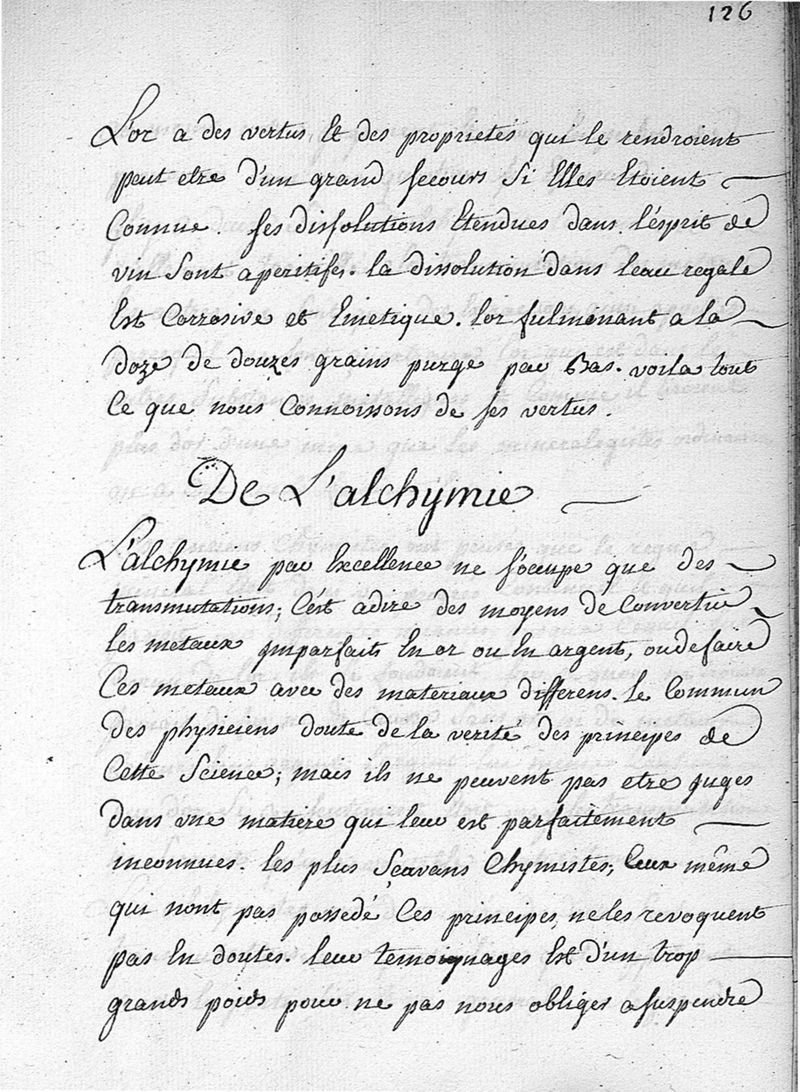 126
L'or a des vertus, Et des proprietés qui le rendroient
peut etre d'un grand secours Si Elles Etoient
Connue. ses dissolutions Etendues dans l'ésprit de
vin Sont aperitifs. la dissolution dans l'eau regale
Est Corrosive et Emetique. l'or fulminant a la
doze de douzes grains purge par Bas. voila tout
Ce que nous Connoissons de ses vertus.
De L'alchymie
L'alchymie par Excellence ne s'occupe que des
transmutations; C'est adire des moyens de Convertir
les metaux imparfaits En or ou En argent, ou de faire
Ces metaux avec des materiaux differens. le Commun
des physiciens doute de la verité des principes de
Cette Science; mais ils ne peuvent pas etre juges
dans une matiere qui leur est parfaitement
inconnues. les plus Sçavans Chymistes, Ceux même
qui n'ont pas possedé Ces principes, ne les revoquent
pas En doutes. leur temoignages Est d'un trop
grands poids pour ne pas nous obliger a suspendre